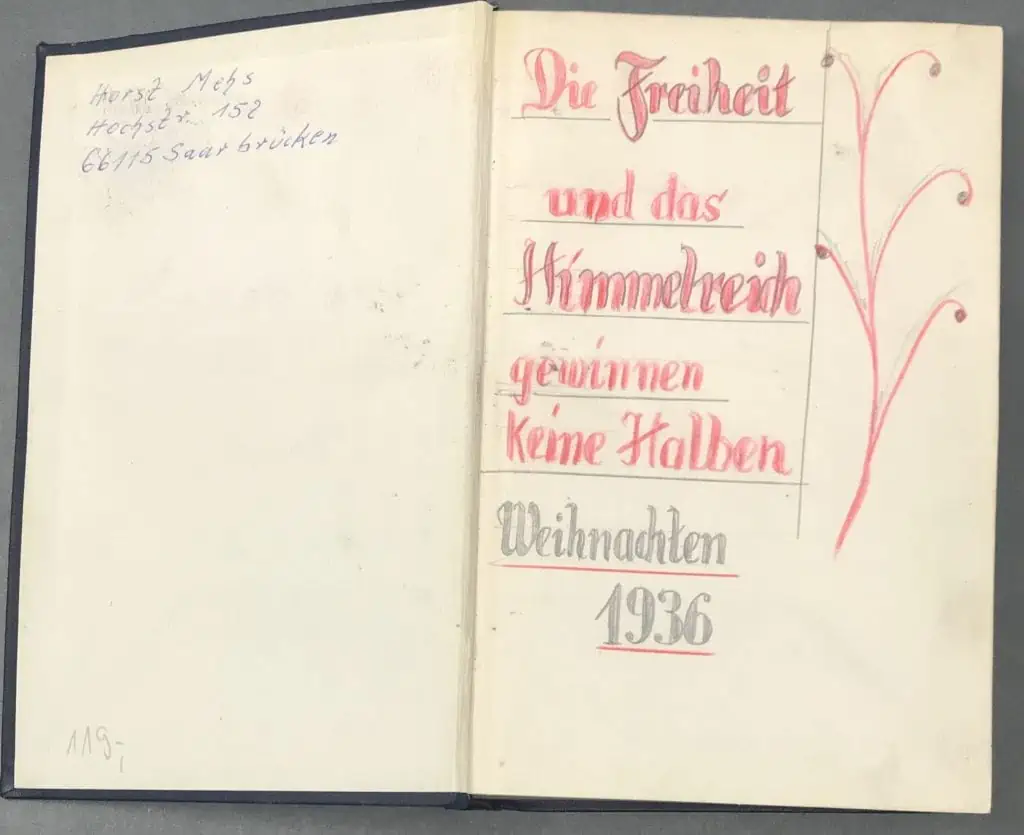 Horst Mehs
Hochstr. 152
66115 Saarbrücken
119,-
Die Freiheit
und das
Himmelreich
gewinnen
Keine Halben
Weihnachten
1936